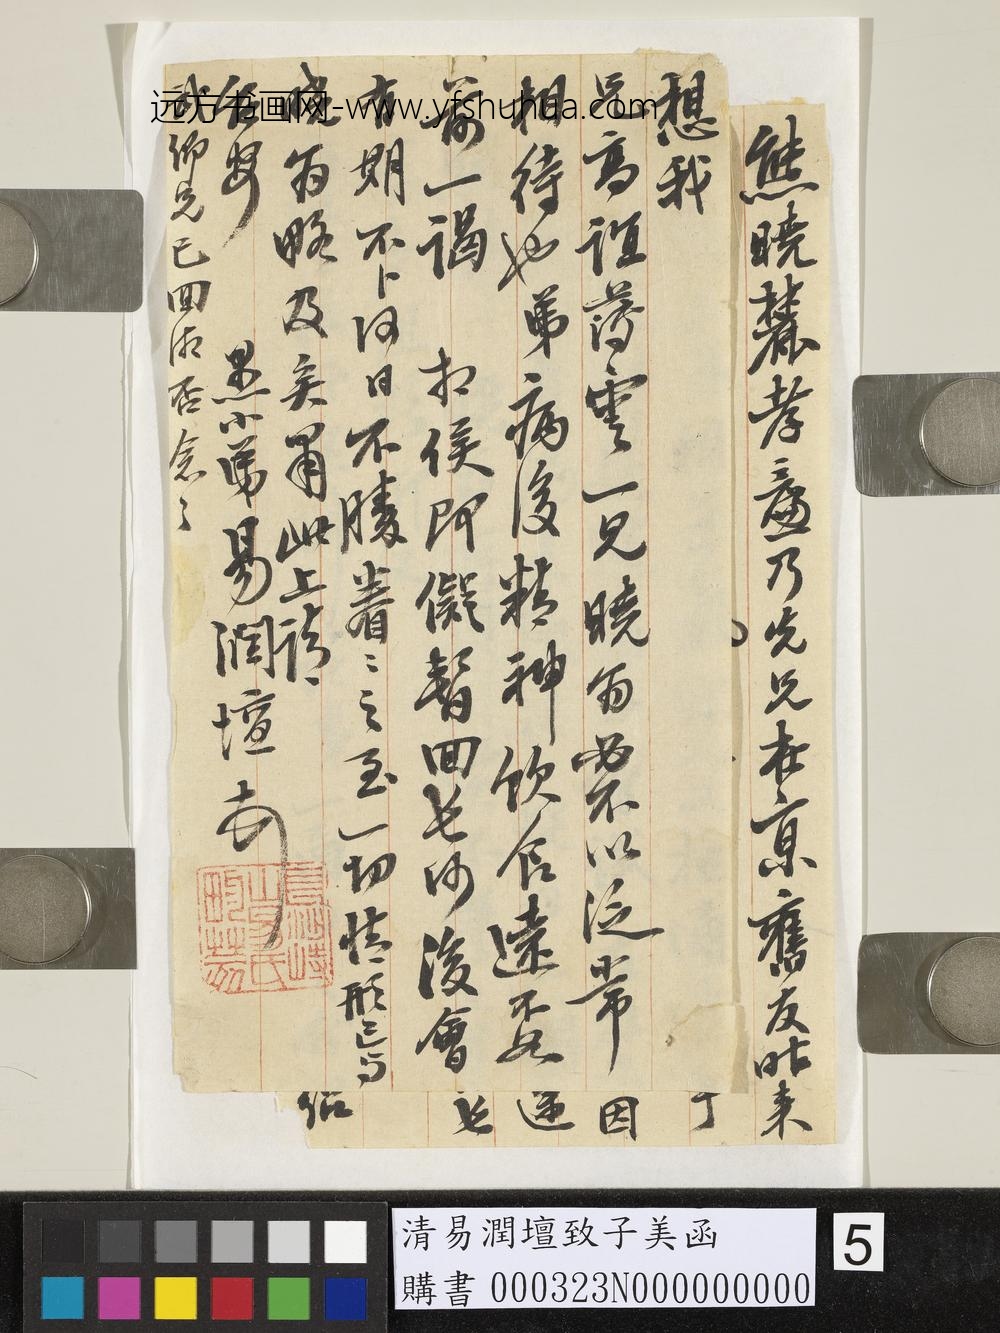 熊曉麓孝廉乃先兄在京舊友昨來
想我
兄高誼薄雲一見曉翁必不以泛常
相待也弟病後精神飲食遠不如
前一謁
相侯即儗暫回長沙後會
有期不卜何日不勝眷〻之至一切情形已與
曉翁略及矣肅此上請
台安
愚小弟易潤壇頓
武仰兄已回湘否念〻
因
远方书画网-www.yfshuhua.com
清易潤壇致子美函
購書 000323N000000000
5